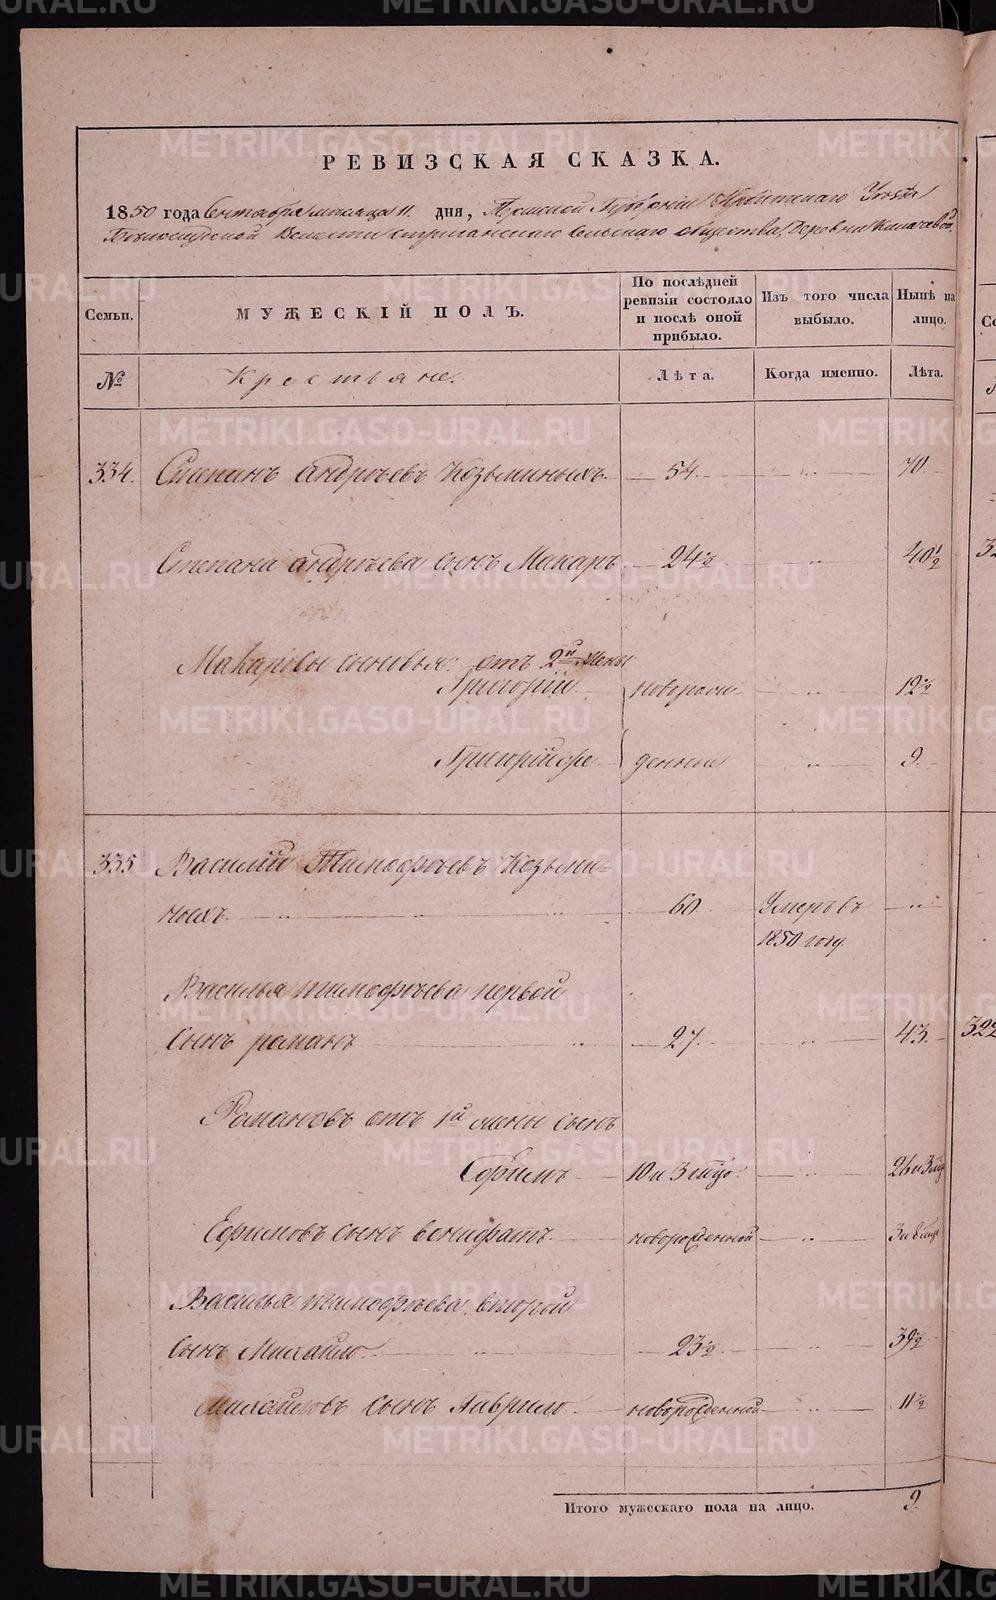 РЕВИЗСКАЯ СКАЗКА.
1850 года Сентября месяца 11 дня, Пермской Губернии Ирбитского Уезда
Белослудской Волости Стриганского Сельского общества, Деревни Кипачевой.
Семьи. МУЖЕСКІЙ ПОЛЪ. По послѣдней ревизіи состояло и послѣ оной прибыло. Изъ того числа выбыло. Нынѣ на лицо.
№ Крестьяне. Лѣта. Когда именно. Лѣта.
334. Степанъ Андрѣевъ Козьминыхъ 54. 70
Степана Андрѣева сынъ Макаръ 24½ 40½
Макаровы сыновья: отъ 2й жены
Григорій новорож 12½
Григорій же денные 9.
335 Василій Тимофѣевъ Козьми-
ныхъ. 60 Умеръ въ
1850 году.
Василья Тимофѣева первой
сынъ романъ 27. 43.
Романовъ отъ 1й жены сынъ
Ефимъ 10 и 3 мѣс. 26 и 3 мѣ
Ефимовъ сынъ Вонифатъ новорожденной
Василья Тимофѣева второй
сынъ Михайло 23½ 39½
Михайловъ сынъ Гаврило новорожденной 11½
Итого мужескаго пола на лицо. 9.
METRIKI.GASO-URAL.RU